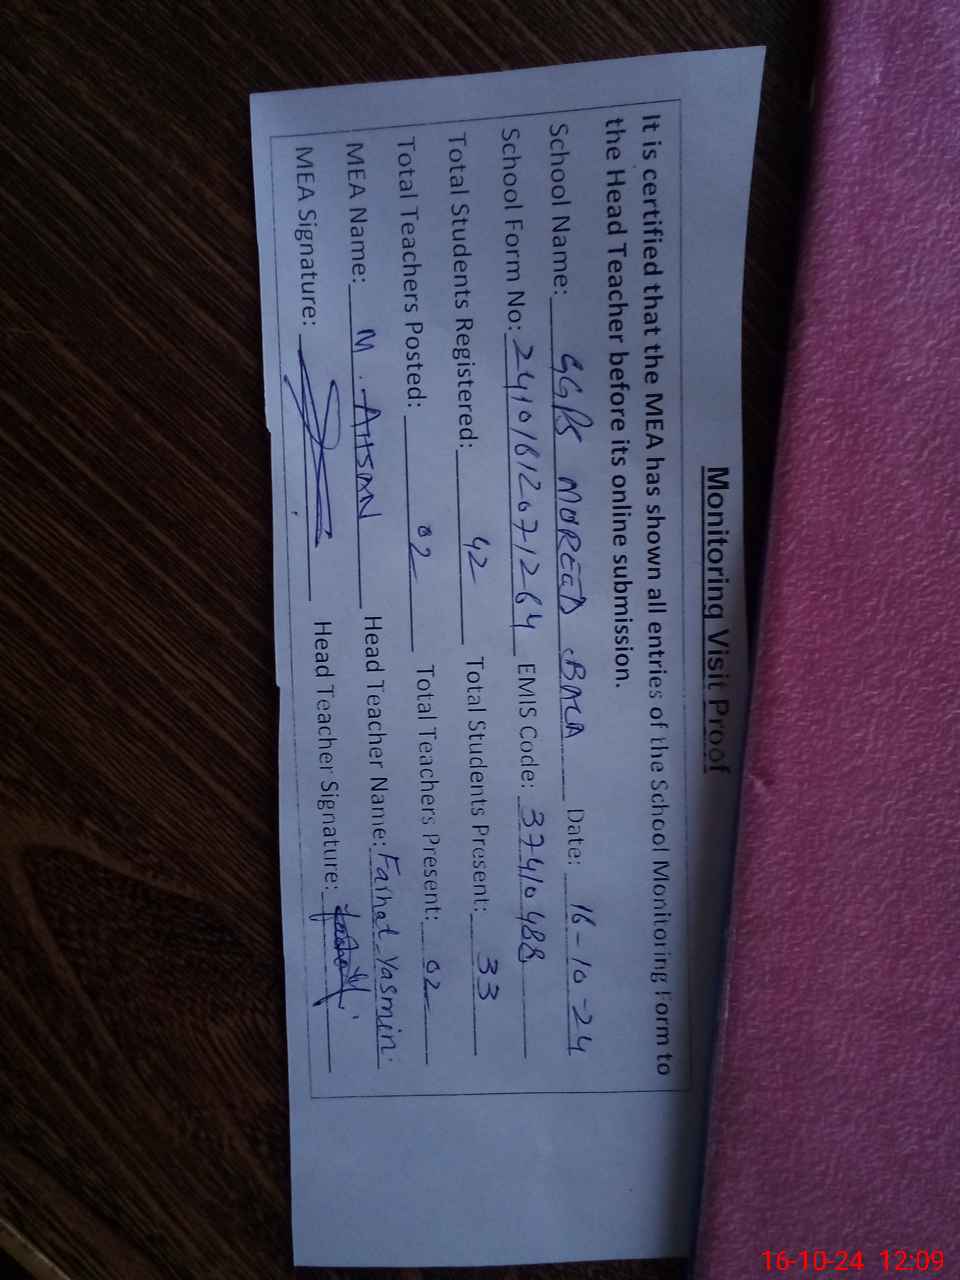 Monitoring Visit Proof
It is certified that the MEA has shown all entries of the School Monitoring Form to
the Head Teacher before its online submission.
School Name: GGPS MOREED BALA Date: 16-10-24
School Form No: 24101612071264 EMIS Code: 37410488
Total Students Registered: 42 Total Students Present: 33
Total Teachers Posted: 02 Total Teachers Present: 02
MEA Name: M. AHSAN Head Teacher Name: Farhat Yasmin
MEA Signature: Head Teacher Signature:
16-10-24 12:09